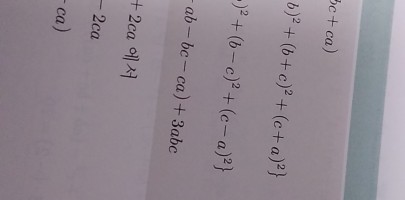 bc + ca)
b)² + (b + c)² + (c + a)²}
)² + (b − c)² + (c − a)²}
ab − bc − ca) + 3abc
+ 2ca 에서
− 2ca
ca)